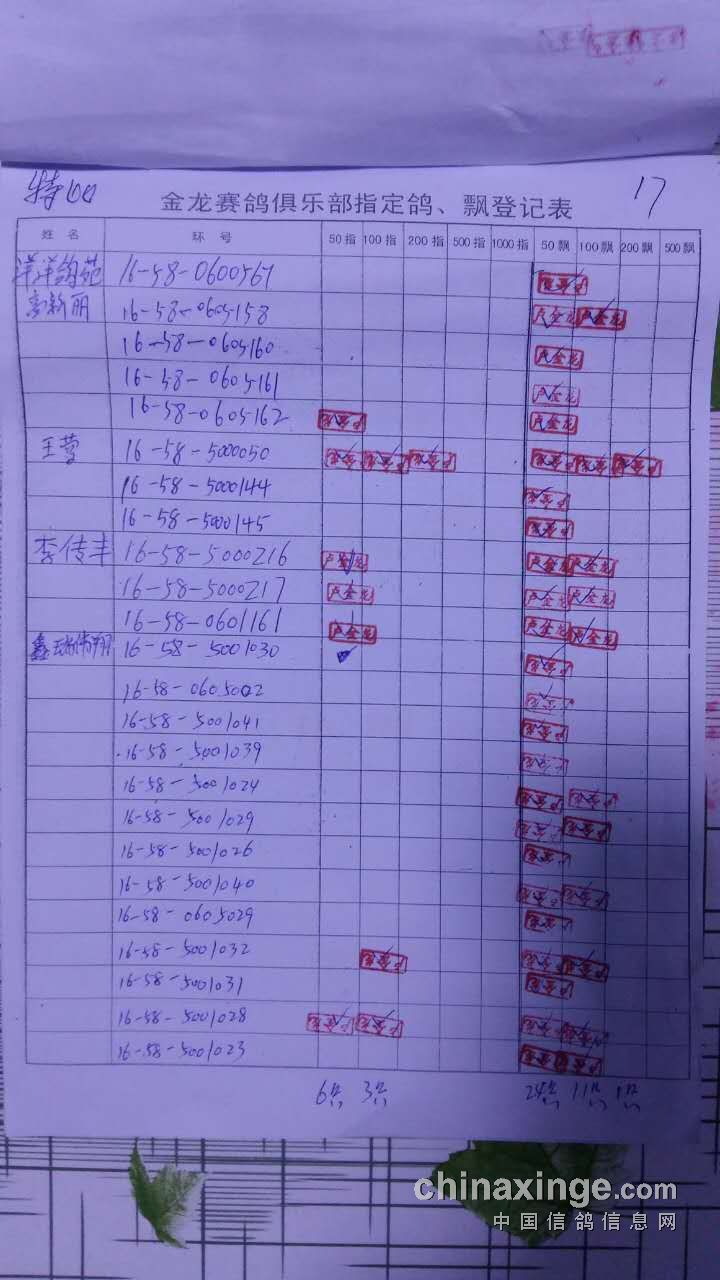 特100
17
金龙赛鸽俱乐部指定鸽、飘登记表
姓名 环号 50指 100指 200指 500指 1000指 50飘 100飘 200飘 500飘
洋洋鸽苑 16-58-0600567
新丽 16-58-0605158 卢金龙 卢金龙
16-58-0605160 卢金龙
16-58-0605161 卢金龙
16-58-0605162 卢金龙
王莹 16-58-5000050
16-58-5000144
16-58-5000145
李传丰 16-58-5000216 卢金龙 卢金龙 卢金龙
16-58-5000217 卢金龙 卢金龙 卢金龙
16-58-0601161 卢金龙 卢金龙 卢金龙
16-58-5001030
16-58-0605002
16-58-5001041
16-58-5001039
16-58-5001024
16-58-5001029
16-58-5001026
16-58-5001040
16-58-0605029
16-58-5001032
16-58-5001031
16-58-5001028
16-58-5001023
6只 3只 24只 11只 1只
chinaxinge.com
中国信鸽信息网